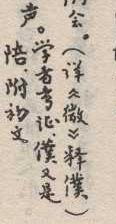 会。(详《微》释僕)
声。学者考证僕又是
陪、附初文